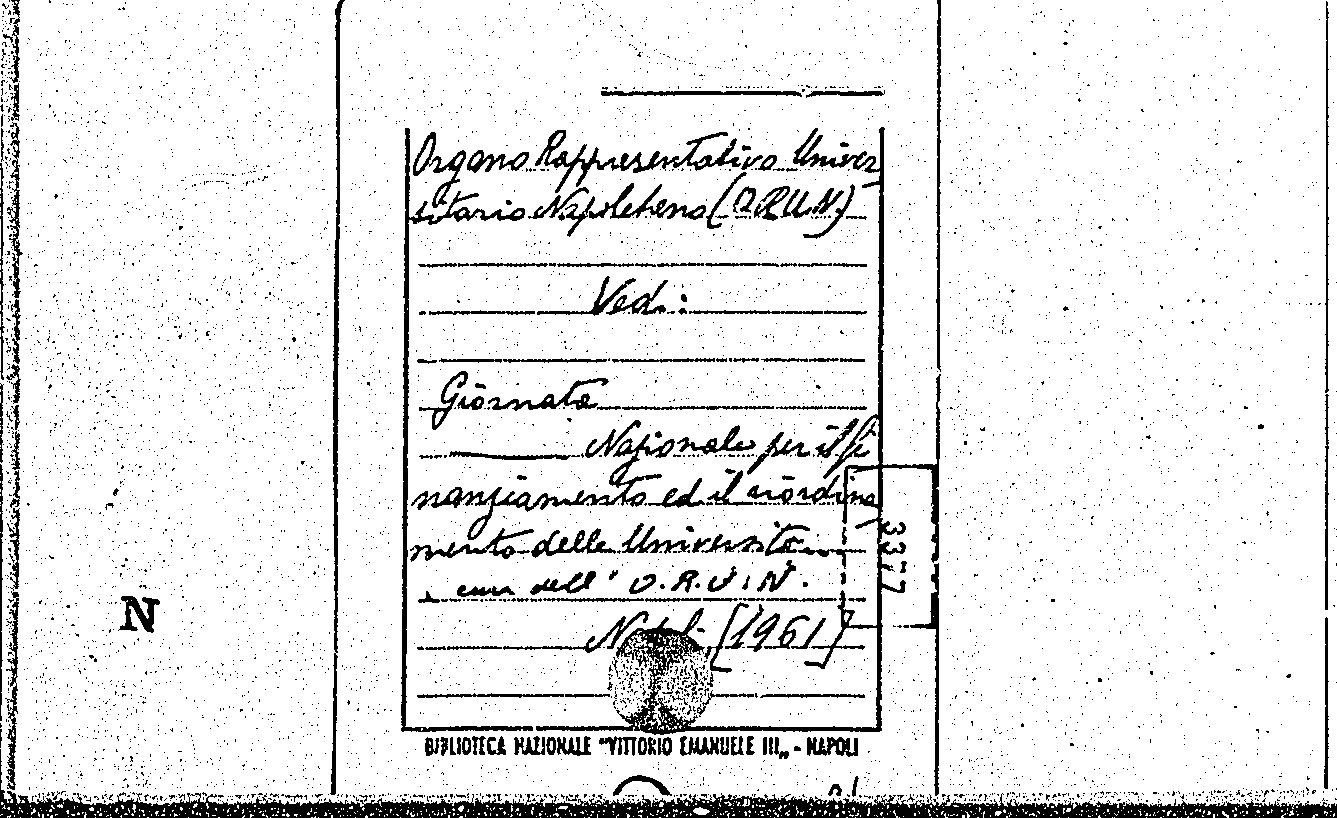 Organo Rappresentativo Univer
sitario Napoletano (ORUN)
Vedi:
Giornata
Nazionale per il fi
nanziamento ed il riordina
mento delle Università
a cura dell' O.R.U.N.
Napoli, [1961]
3377
N
BIBLIOTECA NAZIONALE "VITTORIO EMANUELE III„ - NAPOLI